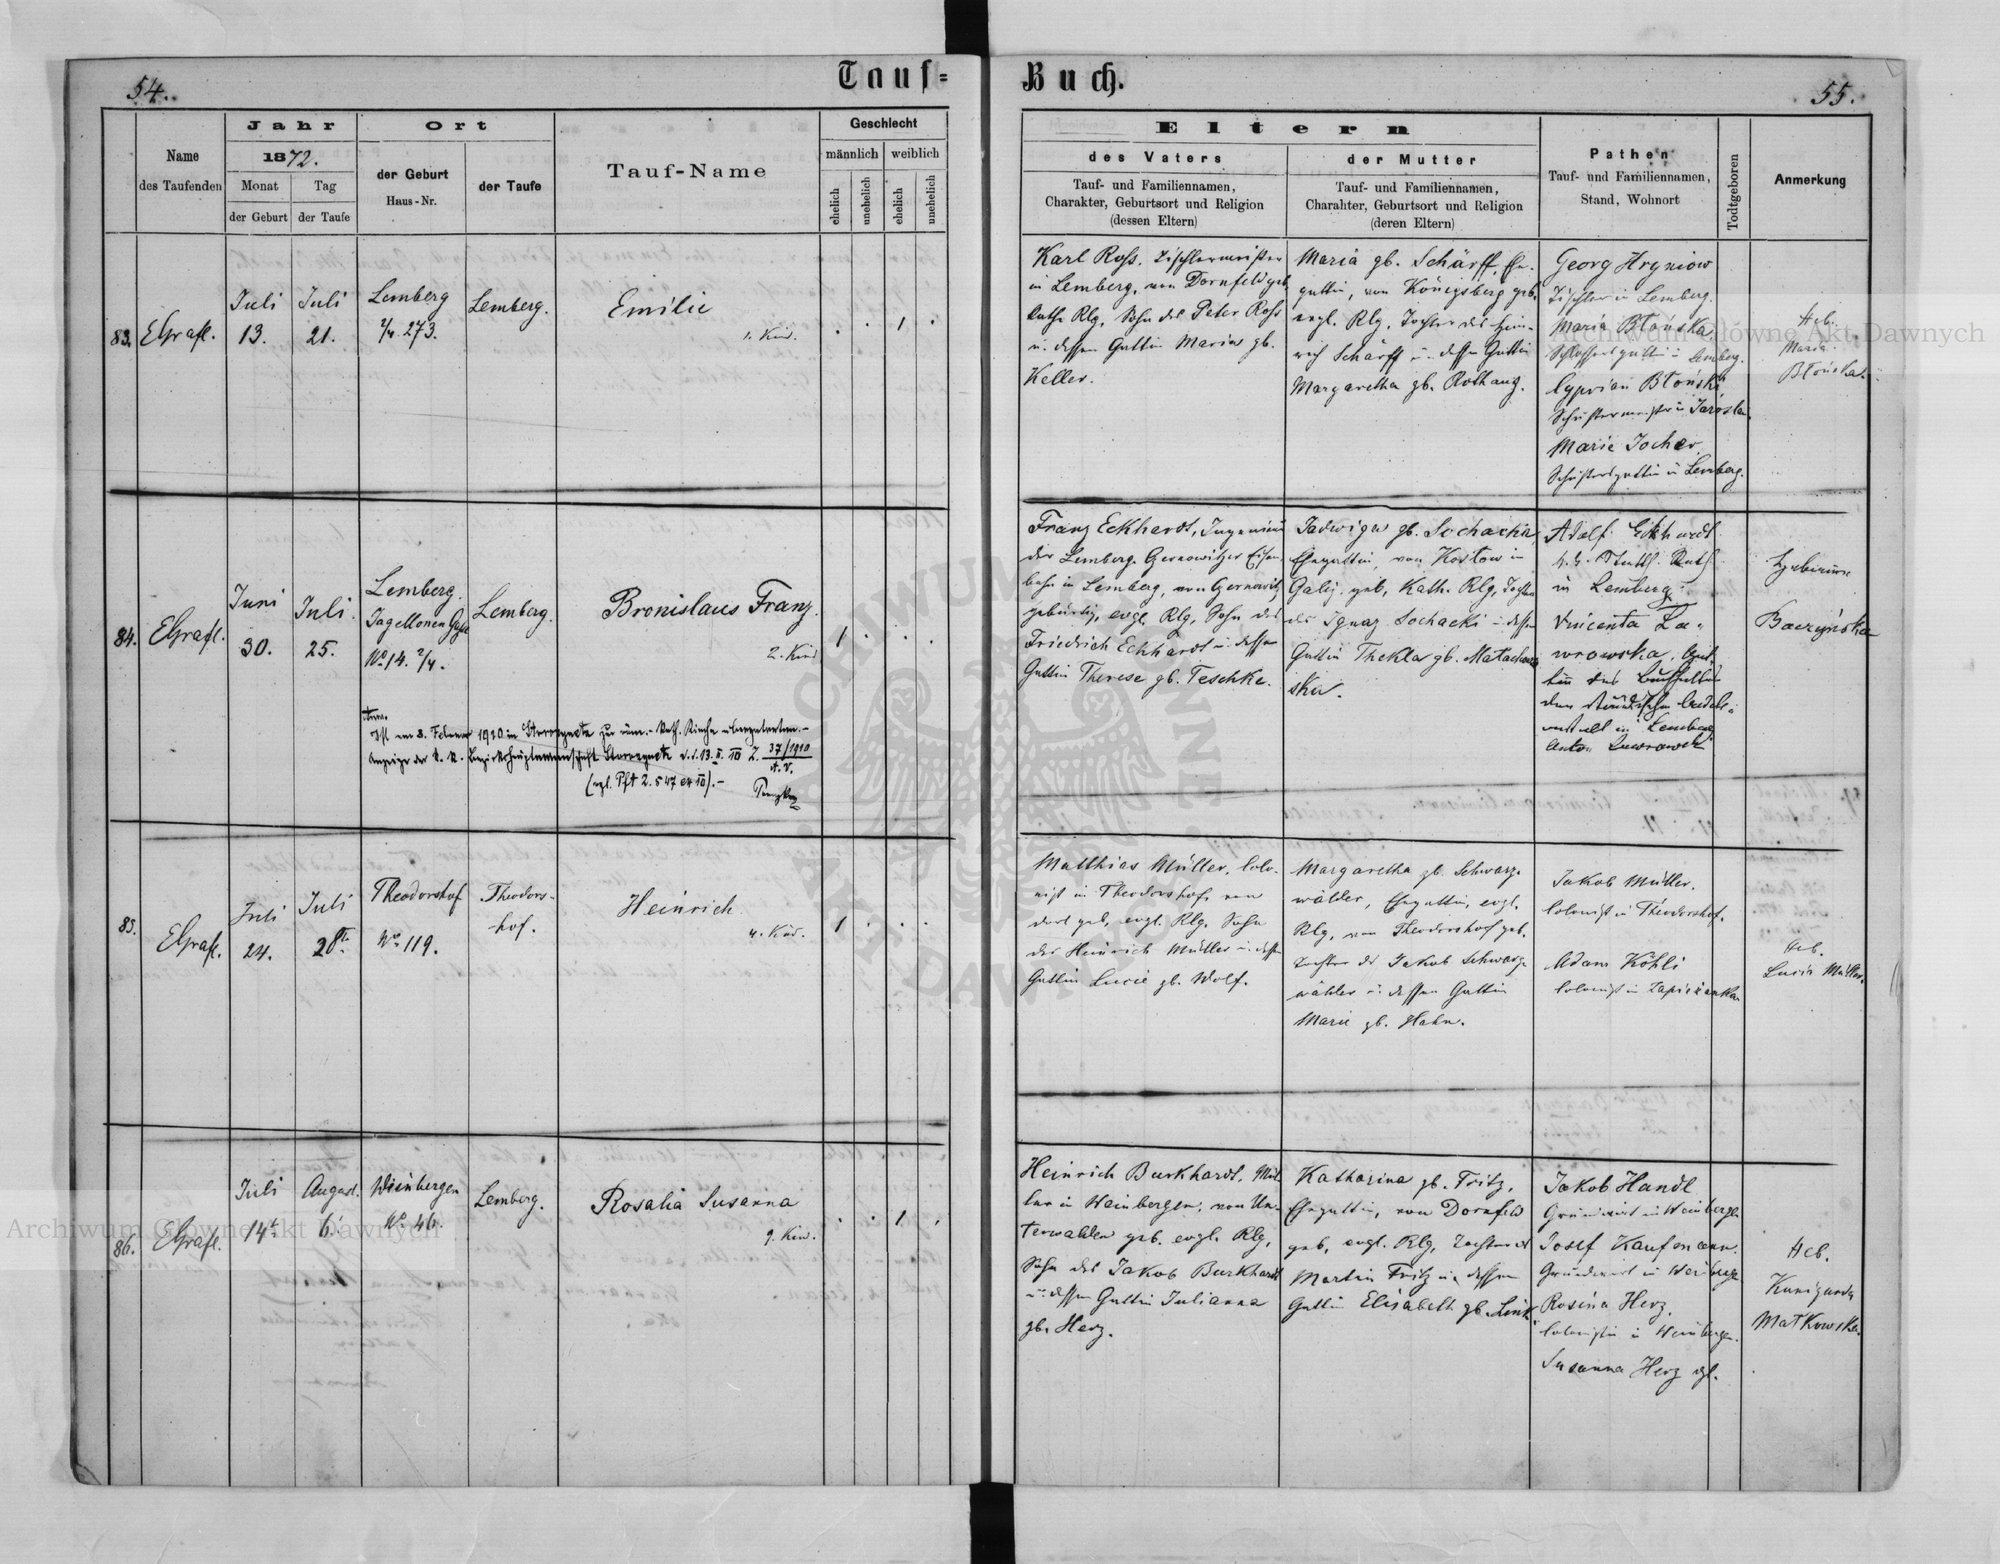 54.
Tauf=
Buch.
55.
Name
des Taufenden
Jahr
1872.
Monat
der Geburt
Tag
der Taufe
Ort
der Geburt
Haus-Nr.
der Taufe
Tauf-Name
Geschlecht
männlich
weiblich
ehelich
unehelich
ehelich
unehelich
Eltern
des Vaters
Tauf- und Familiennamen,
Charakter, Geburtsort und Religion
(dessen Eltern)
der Mutter
Tauf- und Familiennamen,
Charahter, Geburtsort und Religion
(deren Eltern)
Pathen
Tauf- und Familiennamen,
Stand, Wohnort
Todtgeboren
Anmerkung
83.
EGrafl.
Juli
13.
Juli
21.
Lemberg
2/4. 273.
Lemberg.
Emilie
1. Kind.
1
Karl Roſs. Tischlermeister
in Lemberg, von Dornfeld geb.
kath. Rlg, Sohn des Peter Roſs
u. dessen Gattin Maria gb.
Keller.
Maria gb. Schärff, Ehe-
gattin, von Königsberg geb.
evgl. Rlg, Tochter des Hein-
rich Schärff u. dessen Gattin
Margaretha gb. Rothaug.
Georg Hryniów
Tischler in Lemberg.
Maria Błońska
Schlossersgattin in Lemberg.
Cyprian Błoński
Schustermeister in Jarosla
Marie Jocher
Schustersgattin in Lemberg.
Heb.
Maria
Błońska.
84.
EGrafl.
Juni
30.
Juli.
25.
Lemberg.
Jagellonen Gasse
No 14. 2/4.
Lemberg.
Bronislaus Franz.
2. Kind
1
Ist am 8. Februar 1910 in Storozynetz zur röm.-kath. Kirche übergetreten.-
Anzeige der k. k. Bezirkshauptmannschaft Storozynetz d. d. 13. II. 10 Z. 37/1910
A. V.
(vgl. Pft Z. 547 ex 10).-
Franz Eckhardt, Ingenieur
der Lemberg. Czernowitzer Eisen-
bahn in Lemberg, von Czernowitz
gebürtig, evgl. Rlg, Sohn des
Friedrich Eckhardt u. dessen
Gattin Therese gb. Teschke.
Jadwiga gb. Sochacka,
Ehegattin, von Kostow in
Galiz. geb, Kath. Rlg, Tochter
des Ignaz Sochacki u. dessen
Gattin Thekla gb. Matachow
ska.
Adolf Eckhardt
k. k. Statth. Rath
in Lemberg.
Vincenta La-
wrowska, Gat-
tin des Buchhalters
der ständischen Credits-
anstalt in Lemberg
Anton Lawrowski
Hebamme
Baczyńska
85.
EGrafl.
Juli
24.
Juli
28ten
Theodorshof
No. 119.
Theodors-
hof.
Heinrich
4. Kind.
1
Matthias Müller, Colo-
nist in Theodorshof, von
dort geb, evgl. Rlg. Sohn
des Heinrich Müller u. dessen
Gattin Lucie gb. Wolf.
Margaretha gb. Schwarz-
wälder, Ehegattin, evgl.
Rlg, von Theodorshof geb.
Tochter des Jakob Schwarz-
wälder u. dessen Gattin
Marie gb. Hahn.
Jakob Müller.
Colonist in Theodorshof.
Adam Köhli
Colonist in Zapiezanka
Heb.
Lucia Müller.
86.
EGrafl.
Juli
14t.
August.
6t.
Weinbergen
No. 46.
Lemberg.
Rosalia Susanna
9. Kind.
1
Heinrich Burkhardt, Mül-
ler in Weinbergen, von Un-
terwalden geb. evgl. Rlg,
Sohn des Jakob Burkhardt
u. dessen Gattin Julianna
gb. Herz.
Katharina gb. Fritz,
Ehegattin, von Dornfeld
geb, evgl. Rlg, Tochter des
Martin Fritz u. dessen
Gattin Elisabeth gb. Link.
Jakob Handl
Grundwirt in Weinbergen
Josef Kaufmann.
Grundwirt in Weinbergen
Rosina Herz,
Colonistin in Weinbergen.
Susanna Herz dgl.
Heb.
Kunigunda
Matkowska.
Archiwum Główne Akt Dawnych
Archiwum Główne Akt Dawnych